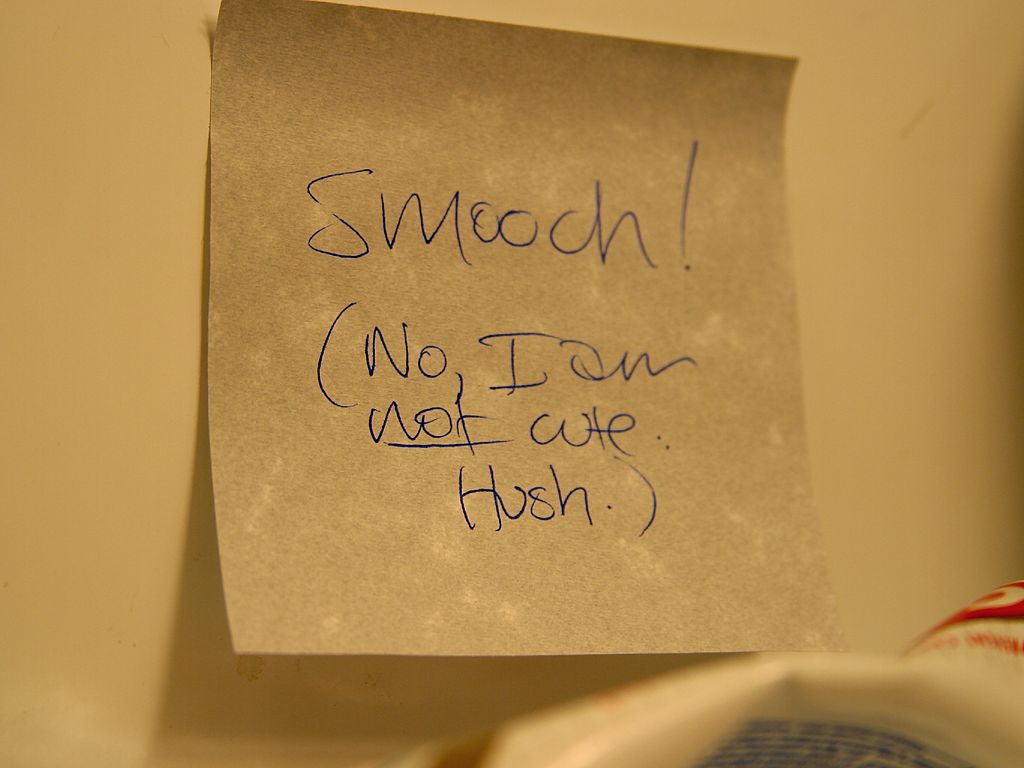 Smooch!
(No, I am
not cute.
Hush.)